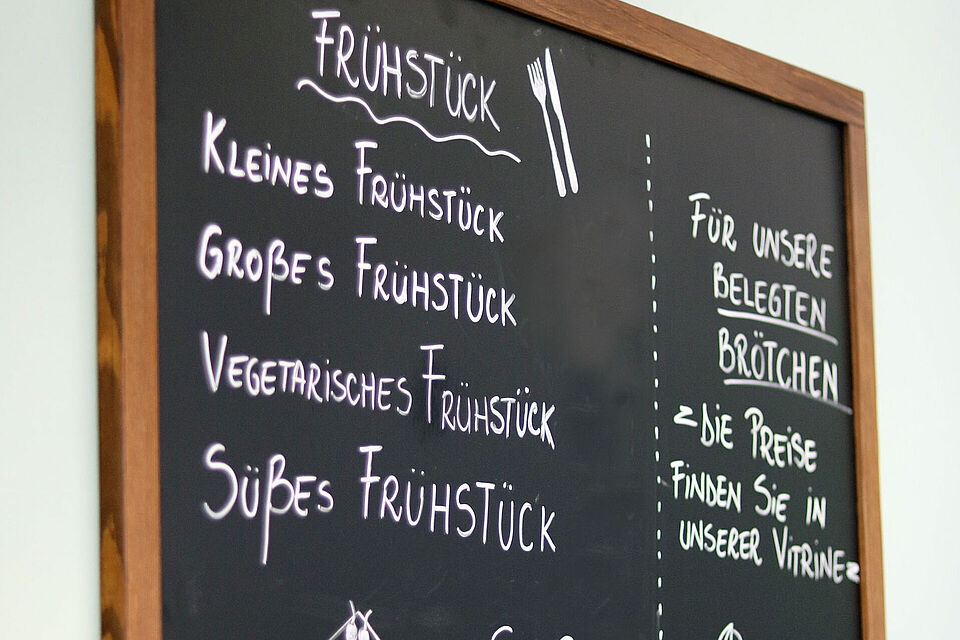 Frühstück
Kleines Frühstück
Großes Frühstück
Vegetarisches Frühstück
Süßes Frühstück
Für unsere
belegten
Brötchen
-Die Preise
finden Sie in
unserer Vitrine-